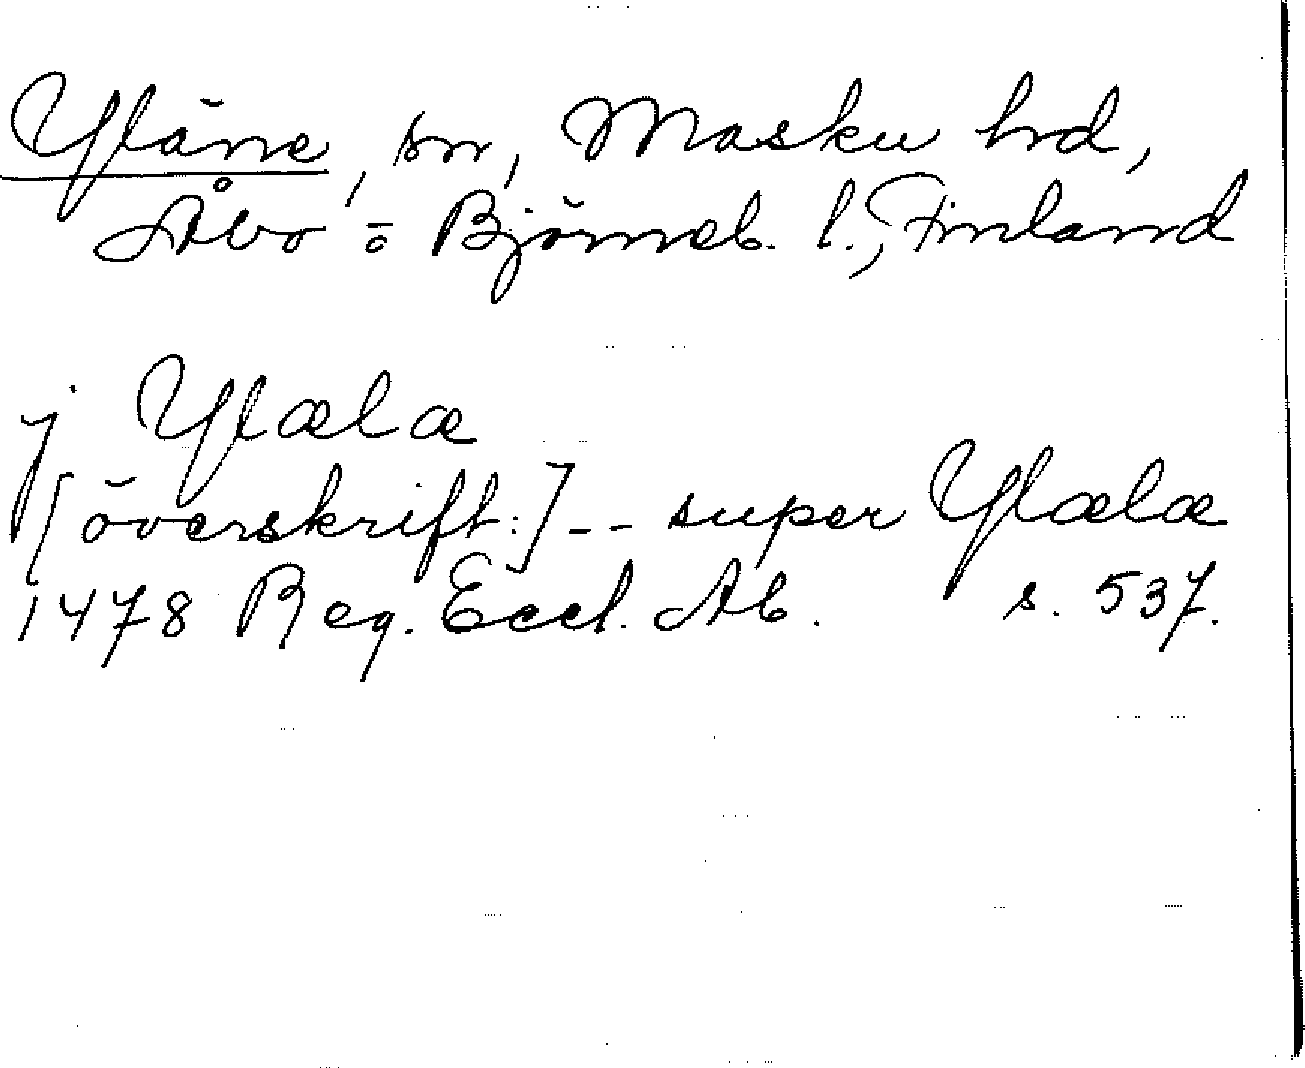 Yläne, sn, Masku hd,
Åbo o Björneb. l., Finland
j Ylælæ
[överskrift:] -- super Ylælæ
1478 Reg. Eccl. Ab. s. 537.